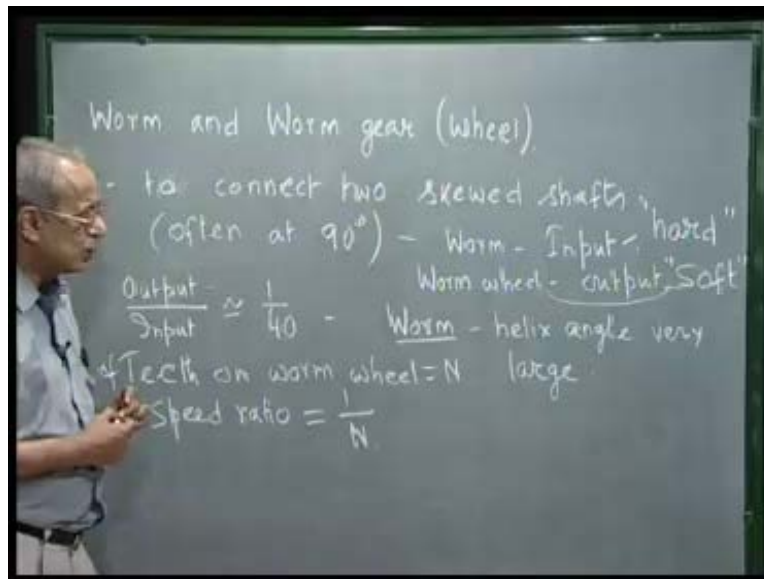 Worm and Worm gear (wheel).
- to connect two skewed shafts,
(often at 90°) - Worm - Input - "hard"
Worm wheel - output, "Soft"
Output/Input ≃ 1/40 - Worm - helix angle very
# Teeth on worm wheel = N large
Speed ratio = 1/N